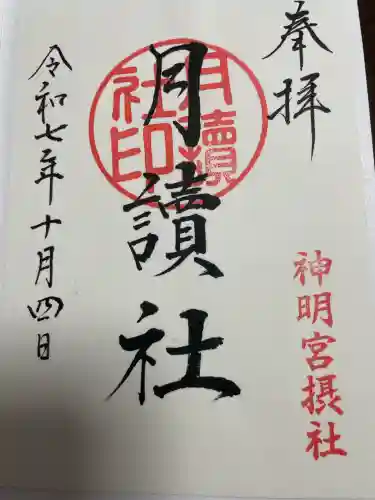 奉拝
神明宮摂社
月讀社
月讀社印
令和七年十月四日